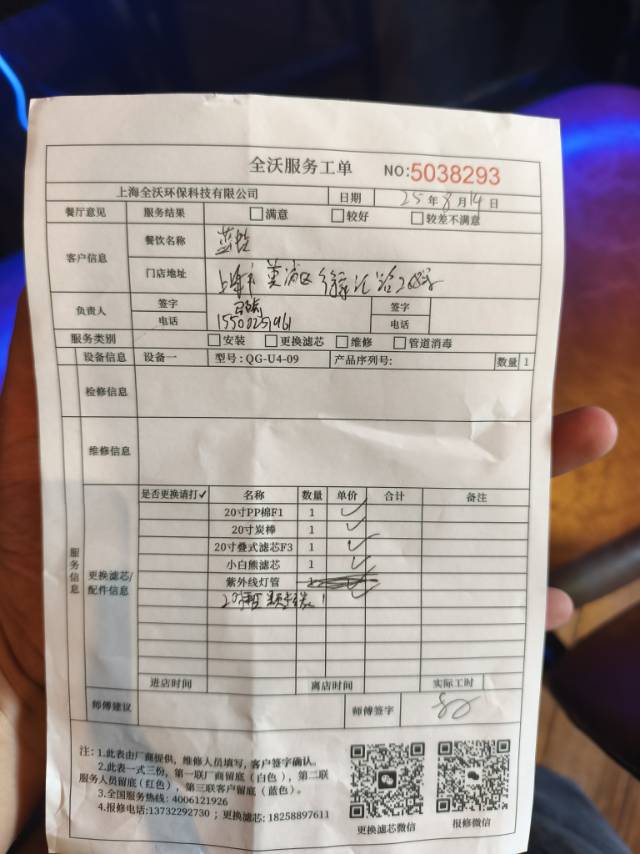 全沃服务工单 NO:5038293
上海全沃环保科技有限公司 日期 25年8月14日
餐厅意见 服务结果 □满意 □较好 □较差不满意
客户信息 餐饮名称 蓝蛙
门店地址 上海市黄浦区徐家汇路268号
负责人 签字 签字
电话 电话
服务类别 □安装 □更换滤芯 □维修 □管道消毒
设备信息 设备一 型号:QG-U4-09 产品序列号: 数量 1
检修信息
维修信息
服务信息
更换滤芯/配件信息
是否更换请打✓ 名称 数量 单价 合计 备注
20寸PP棉F1 1 ✓
20寸炭棒 1 ✓
20寸叠式滤芯F3 1 ✓
小白熊滤芯 1 ✓
紫外线灯管
进店时间 离店时间 实际工时
师傅建议 师傅签字
注:1.此表由厂商提供,维修人员填写,客户签字确认。
2.此表一式三份,第一联厂商留底(白色),第二联
服务人员留底(红色),第三联客户留底(蓝色)。
3.全国服务热线: 4006121926
4.报修电话:13732292730 ; 更换滤芯: 18258897611
更换滤芯微信 报修微信